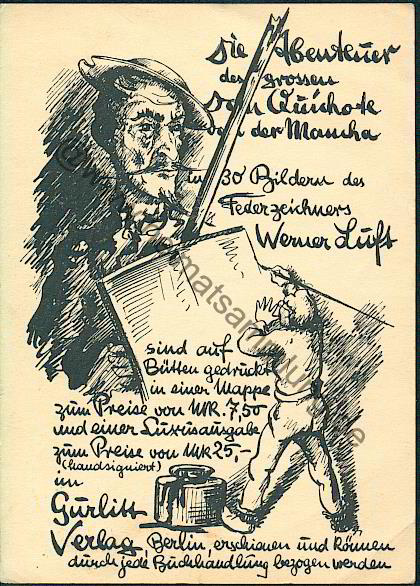 Die Abenteuer
des grossen
Don Quichote
von der Mancha
in 30 Bildern des
Federzeichners
Werner Luft
sind auf
Bütten gedruckt
in einer Mappe
zum Preise von MK. 7,50
und einer Luxusausgabe
zum Preise von MK 25,-
(handsigniert)
im
Gurlitt
Verlag, Berlin, erschienen und können
durch jede Buchhandlung bezogen werden